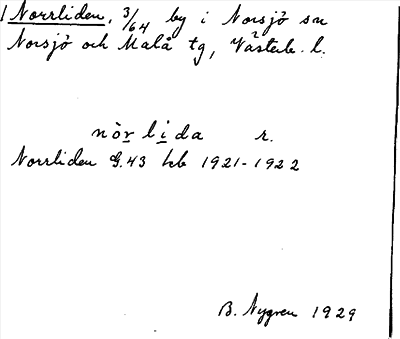 Norrliden, 3/64 by i Norsjö sn
Norsjö och Malå tg, Västerb. l.
nòrlida r.
Norrliden G.43 kb 1921-1922
B. Nygren 1929